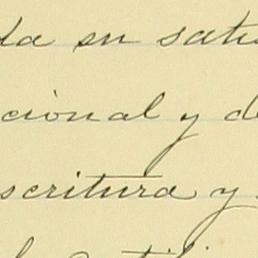 da en satis
cional y de
scritura y